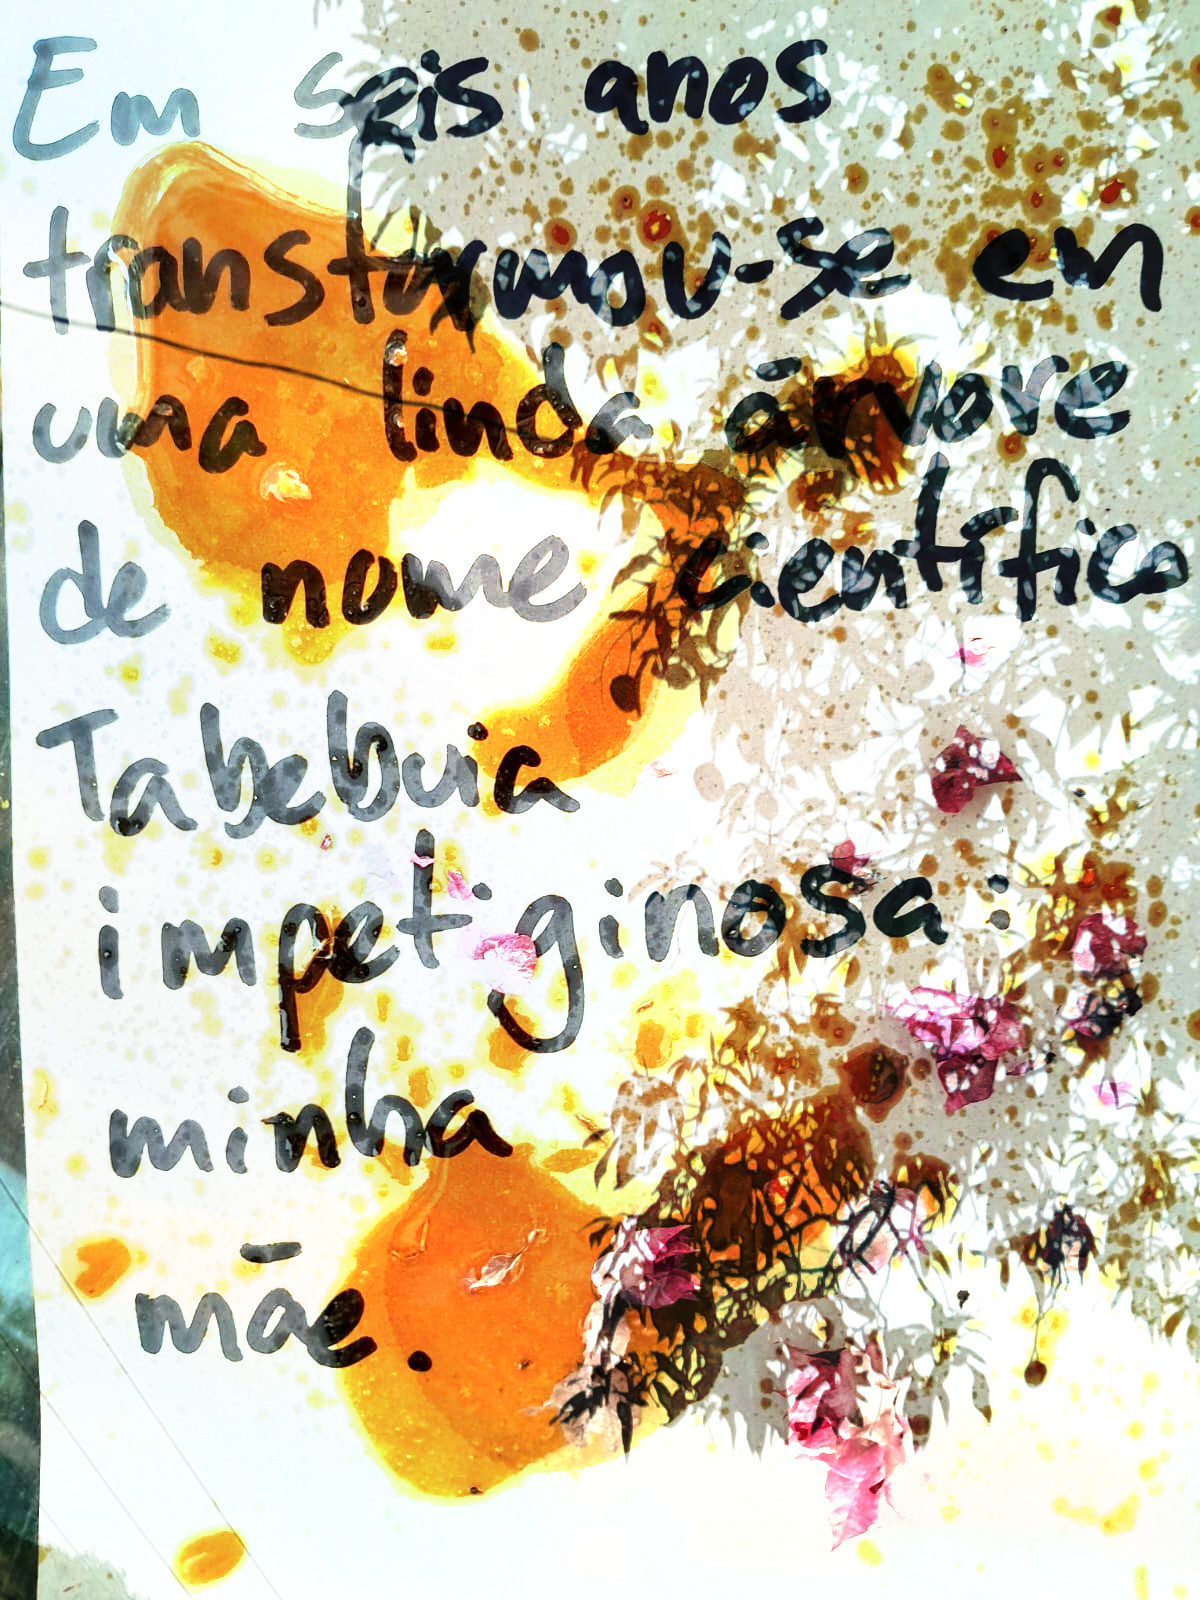 Em seis anos
transformou-se em
uma linda árvore
de nome científico
Tabebuia
impetiginosa:
minha
mãe.